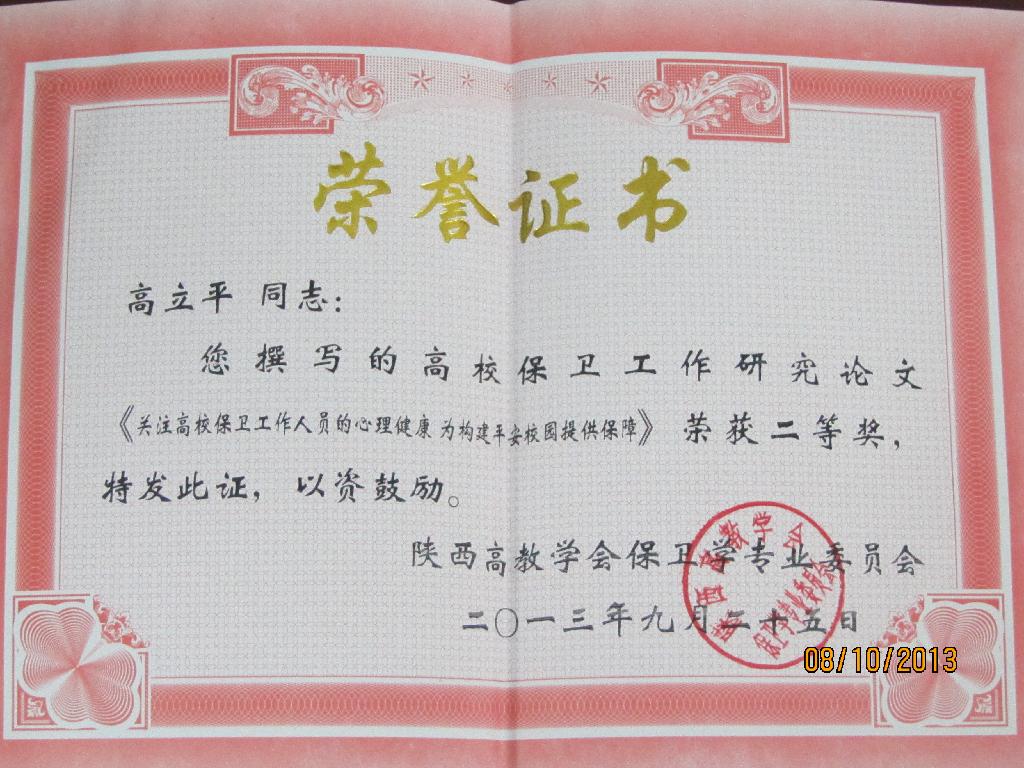 荣誉证书
高立平 同志：
您撰写的高校保卫工作研究论文
《关注高校保卫工作人员的心理健康 为构建平安校园提供保障》 荣获二等奖，
特发此证，以资鼓励。
陕西高教学会保卫学专业委员会
二〇一三年九月二十五日
陕西高教学会
保卫学专业委员会
08/10/2013